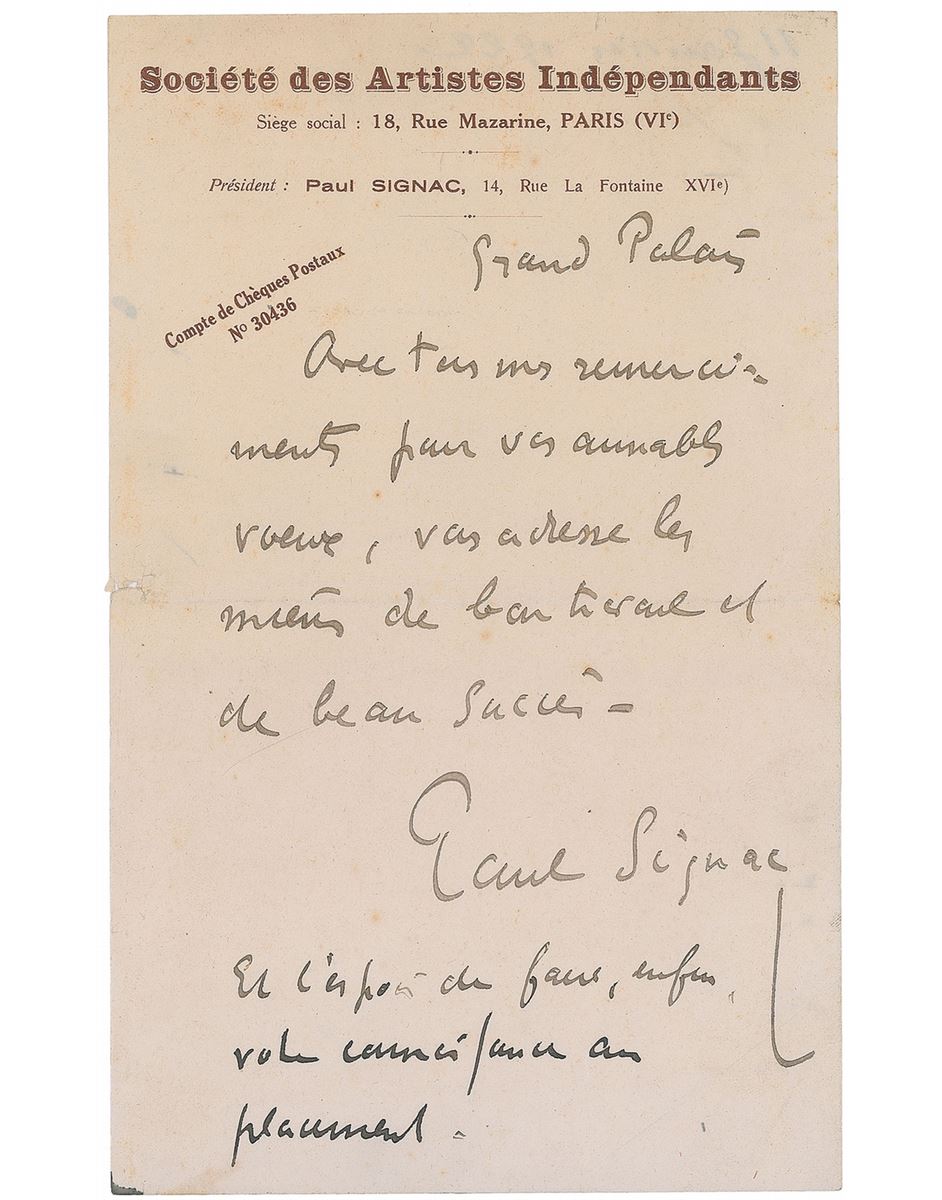 Société des Artistes Indépendants
Siège social : 18, Rue Mazarine, PARIS (VIe)
Président : Paul SIGNAC, 14, Rue La Fontaine XVIe)
Grand Palais
Compte de Chèques Postaux
No 30436
Avec tous mes remercie-
ments pour vos aimables
voeux, vous adresse les
miens de bon travail et
de beau succès –
Paul Signac
Et l'espoir de faire, enfin,
votre connaissance au
placement.